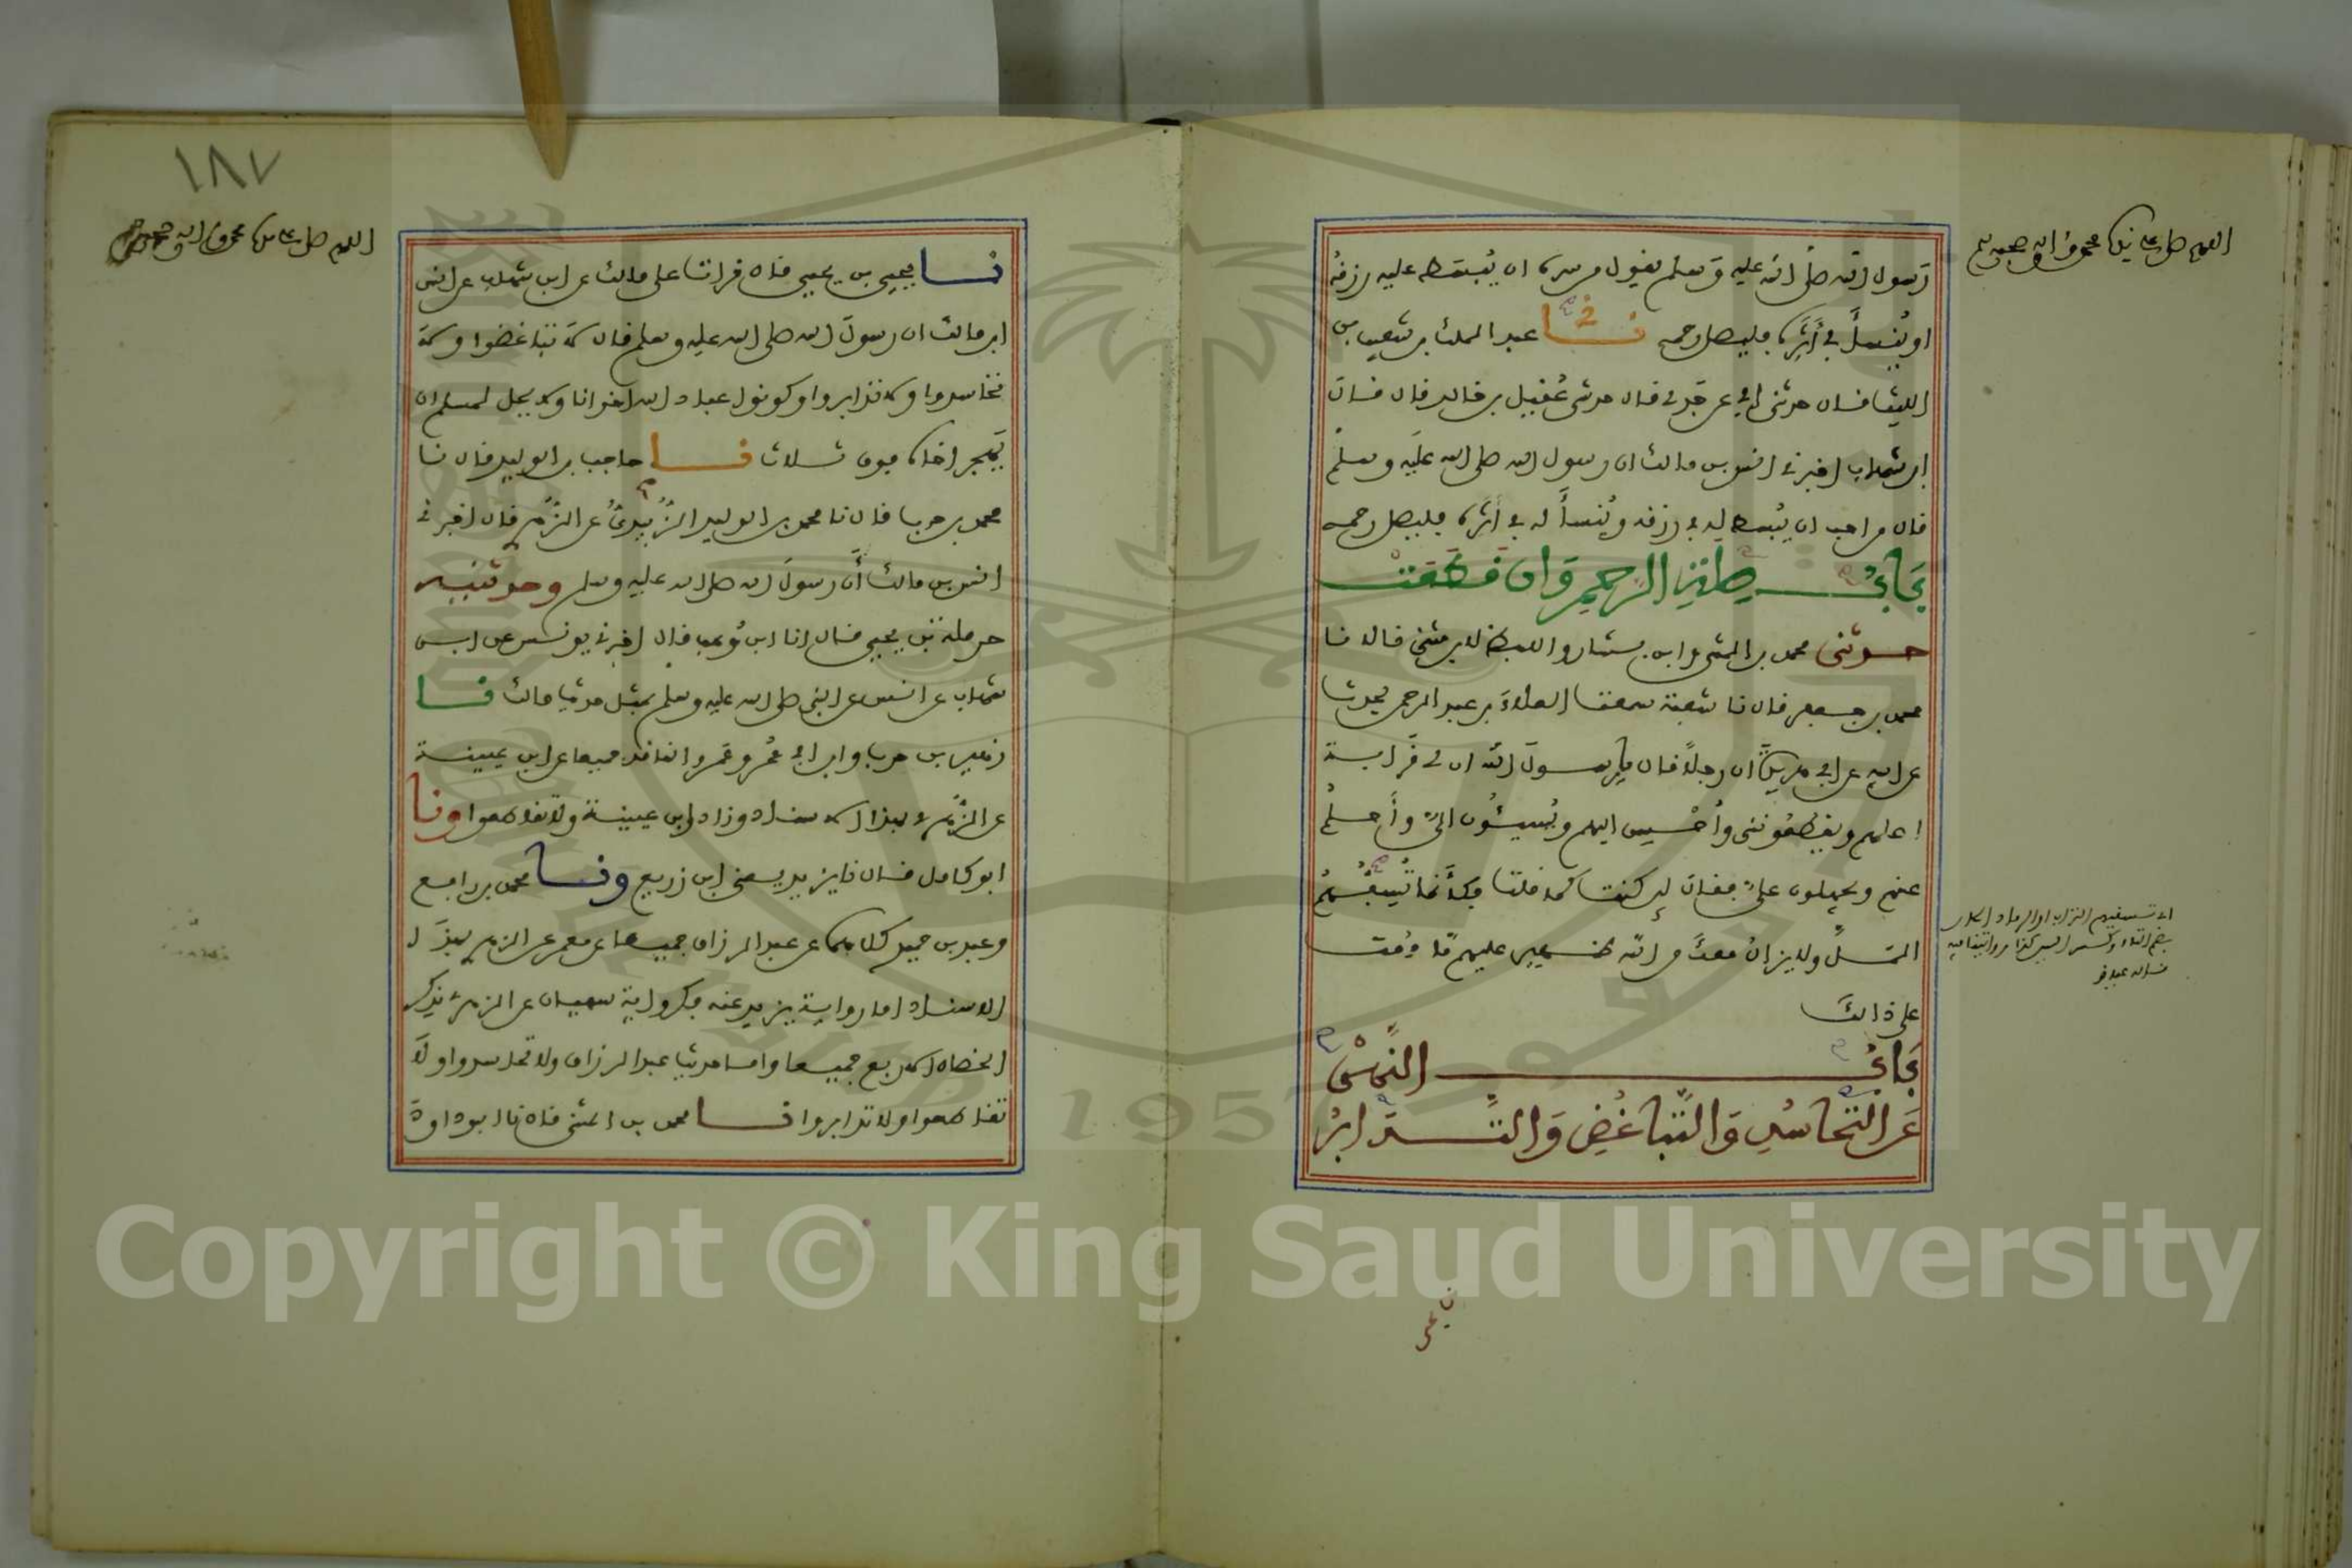 اللهم صل على سيدنا محمد وآله وصحبه
رَسول الله صلى الله عليه وَسلم يقول من سره ان يُبسَط عليه رزقهُ
او يُنسأَ في أَثَرِه فليصل رحمه نا عبد الملك بن شعيب بن
الليث قال حدثنى ابي عن جَدي قال حدثنى عُقيل بن خالد قال قال
ابن شهاب اخبرني انس بن مالك ان رسول الله صلى الله عليه وسلم
قال من احب ان يُبسط له في رزقه ويُنسأَ له في أَثَرِه فليصل رحمه
بَابُ صِلَةِ الرَّحِمِ وَان قَطَعَتْ
حدثنى محمد بن المثنى وابن بشار واللفظ لابن مثنى قالا نا
محمد بن جعفر قال نا شعبة سمعت العلاءَ بن عبد الرحمن يحدث
عن ابيه عن ابي هريرةَ ان رجلاً قال يا رسولَ الله ان لي قَرابة
اصلهم ويقطعُونني وأُحْسِن اليهم ويُسيئُون اليَّ وأَحلُم
عنهم ويجهلون عليَّ فقال لين كنت كما قلت فكأَنما تُسِفُّهُمُ
المَلَّ ولا يزالُ معكَ من الله ظهير عليهم مَا دُمت
على ذالكَ
بَابُ النَّهْيِ
عَن التَّحَاسُدِ وَالتَّبَاغُضِ وَالتَّدَابُرِ
اي تسفيهم التراب او الرماد الحار
بضم التاء وكسر السين كذا روايتنا فيه
قاله عياض
١٨٧
اللهم صل على سيدنا محمد وآله وصحبه
نا يحيى بن يحيى قال قرات على مالك عن ابن شهاب عن انس
ابن مالك ان رسولَ الله صلى الله عليه وسلم قال لا تباغضوا ولا
تحاسدوا ولا تدابروا وكونوا عباد الله اخوانا ولا يحل لمسلم ان
يَهجر اخاه فوق ثلاث نا حاجب بن الوليد قال نا
محمد بن حرب قال نا محمد بن الوليد الزُّبيديُّ عن الزُّهري قال اخبرني
انس بن مالك أَن رسولَ الله صلى الله عليه وسلم وحدثنيه
حرملة بن يحيى قال انا ابن وُهب قال اخبرني يونس عن ابن
شهاب عن انس عن النبي صلى الله عليه وسلم بمثل حديث مالك نا
زهير بن حرب وابن ابي عُمر وعَمرو الناقد جميعا عن ابن عيينة
عن الزُّهري بهذا الاسناد وزاد ابن عيينة ولا تقاطعوا ونا
ابو كامل قال نا يزيد يعنى ابن زريع ونا محمد بن رافع
وعبد بن حميد كلاهما عن عبد الرزاق جميعا عن معمر عن الزهري بهذَا
الاسناد اما رواية يزيد عنه فكرواية سفيان عن الزهري يذكر
الخصال الاربع جميعا واما حديث عبد الرزاق ولا تحاسدوا ولَا
تقاطعوا ولا تدابروا نا محمد بن المثنى قال نا ابو داودَ
Copyright © King Saud University
1957